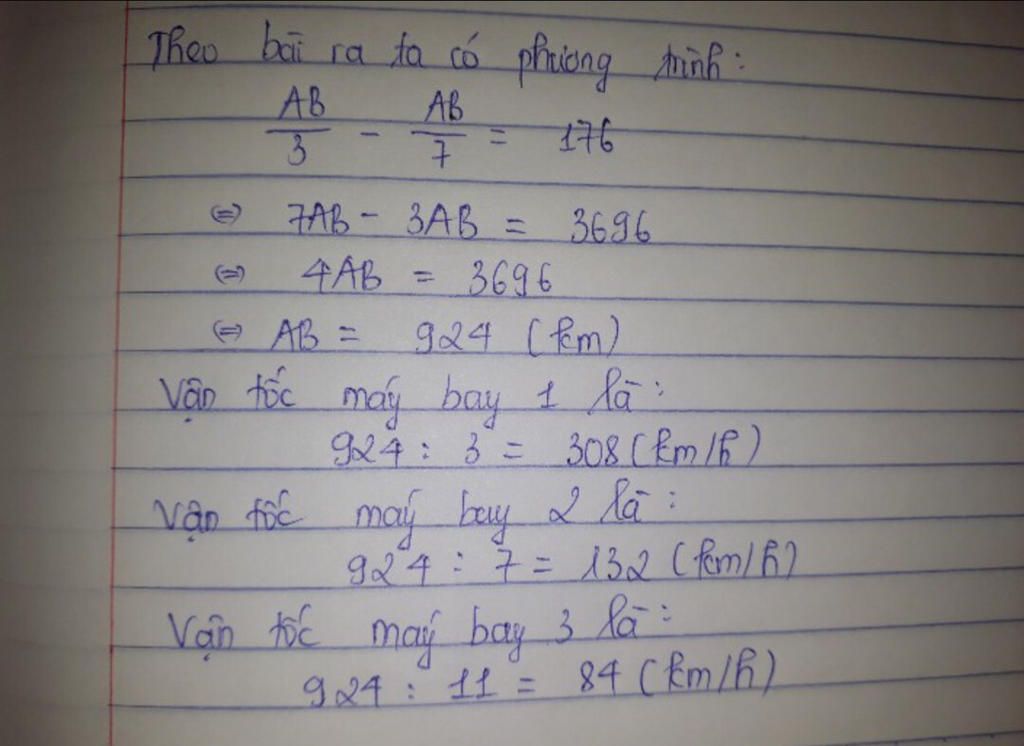 Theo bài ra ta có phương trình:
AB/3 - AB/7 = 176
⇔ 7AB - 3AB = 3696
⇔ 4AB = 3696
⇔ AB = 924 (km)
Vận tốc máy bay 1 là:
924 : 3 = 308 (km/h)
Vận tốc máy bay 2 là:
924 : 7 = 132 (km/h)
Vận tốc máy bay 3 là:
924 : 11 = 84 (km/h)